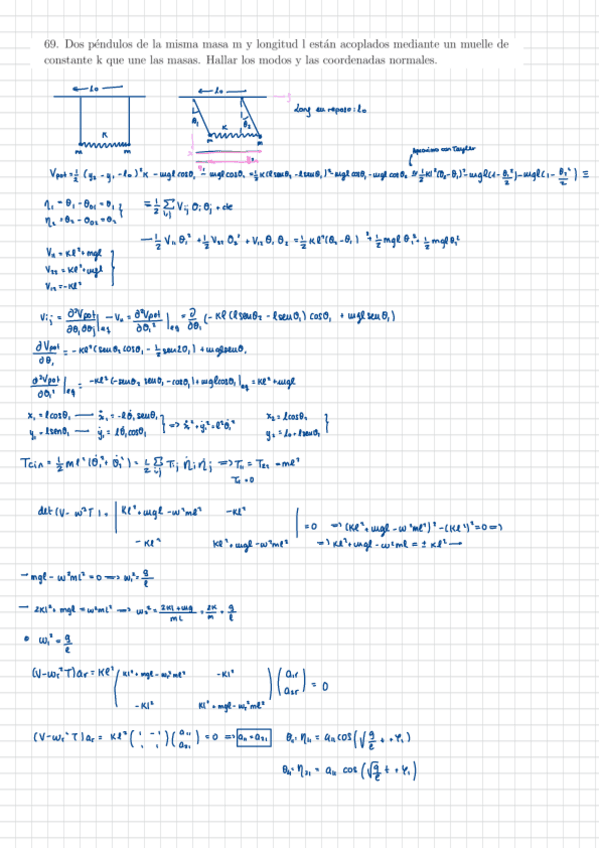 69. Dos péndulos de la misma masa m y longitud l están acoplados mediante un muelle de
constante k que une las masas. Hallar los modos y las coordenadas normales.
l₀ l₀ y
θ₁ θ₂ Long en reposo: l₀
K K
m m m m
Aproximo con Taylor
Vpot = 1/2 (y₂ - y₁ - l₀)² K - mgl cosθ₁ - mgl cosθ₂ = 1/2 K (l senθ₂ - l senθ₁)² - mgl cosθ₁ - mgl cosθ₂ ≅ 1/2 Kl² (θ₂-θ₁)² - mgl(1 - θ₁²/2) - mgl(1 - θ₂²/2) ≡
η₁ = θ₁ - θ₀₁ = θ₁
η₂ = θ₂ - θ₀₂ = θ₂ } ≡ 1/2 Σ Vij θi θj + cte
i,j
— 1/2 V₁₁ θ₁² + 1/2 V₂₂ θ₂² + V₁₂ θ₁ θ₂ = 1/2 Kl² (θ₂ - θ₁)² + 1/2 mgl θ₁² + 1/2 mgl θ₂²
V₁₁ = Kl² + mgl
V₂₂ = Kl² + mgl
V₁₂ = -Kl² }
Vij = ∂²Vpot/∂θi∂θj |eq → V₁₁ = ∂²Vpot/∂θ₁² |eq = ∂/∂θ₁ (-Kl (l senθ₂ - l senθ₁) cosθ₁ + mgl senθ₁)
∂Vpot/∂θ₁ = -Kl² (senθ₂ cosθ₁ - 1/2 sen2θ₁) + mgl senθ₁
∂²Vpot/∂θ₁² |eq = -Kl² (-senθ₂ senθ₁ - cosθ₁) + mgl cosθ₁ |eq = Kl² + mgl
x₁ = l cosθ₁ — ẋ₁ = -l θ̇₁ senθ₁ x₂ = l cosθ₂
y₁ = l senθ₁ — ẏ₁ = l θ̇₁ cosθ₁ } => ẋ₁² + ẏ₁² = l² θ̇₁² y₂ = l₀ + l senθ₂ }
Tcin = 1/2 ml² (θ̇₁² + θ̇₂²) = 1/2 Σ Tij η̇i η̇j => T₁₁ = T₂₂ = ml²
i,j T₁₂ = 0
det (V - ω²T) = | Kl² + mgl - ω²ml² -Kl² | = 0 => (Kl² + mgl - ω²ml²)² - (Kl²)² = 0 =>
-Kl² Kl² + mgl - ω²ml² => Kl² + mgl - ω²ml² = ± Kl² —
→ mgl - ω²ml² = 0 => ω₁² = g/l
→ 2Kl² + mgl = ω²ml² => ω₂² = 2Kl + mg/ml = 2K/m + g/l
• ω₁² = g/l
(V - ωr² T) ar = Kl² ( Kl² + mgl - ωr² ml² -Kl² ) ( a1r ) = 0
-Kl² Kl² + mgl - ωr² ml² a2r
(V - ωr² T) ar = Kl² ( 1 -1 ) ( a₁₁ ) = 0 => a₁₁ = a₂₁ θ₁₁ = η₁₁ = a₁₁ cos(√g/l t + φ₁)
a₂₁
η₂₁ = a₁₁ cos (√g/l t + φ₁)